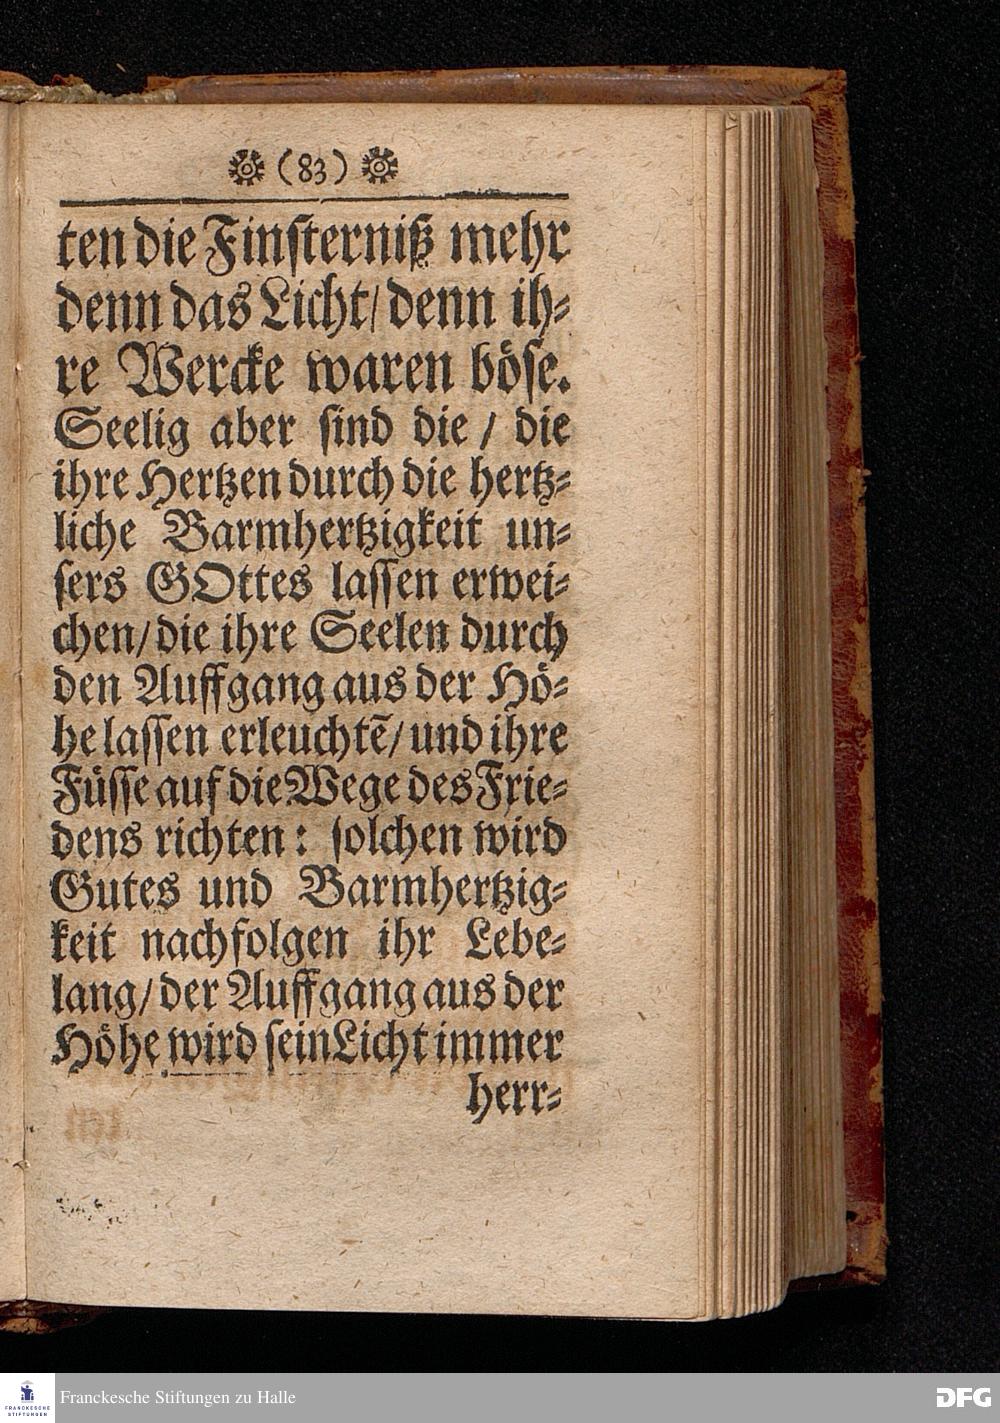 (83)
ten die Finsterniß mehr
denn das Licht/ denn ih⸗
re Wercke waren böse.
Seelig aber sind die / die
ihre Hertzen durch die hertz⸗
liche Barmhertzigkeit un⸗
sers GOttes lassen erwei⸗
chen/ die ihre Seelen durch
den Auffgang aus der Hö⸗
he lassen erleuchtē/ und ihre
Füsse auf die Wege des Frie⸗
dens richten: solchen wird
Gutes und Barmhertzig⸗
keit nachfolgen ihr Lebe⸗
lang/ der Auffgang aus der
Höhe wird sein Licht immer
herr⸗
FRANCKESCHE
STIFTUNGEN
Franckesche Stiftungen zu Halle
DFG